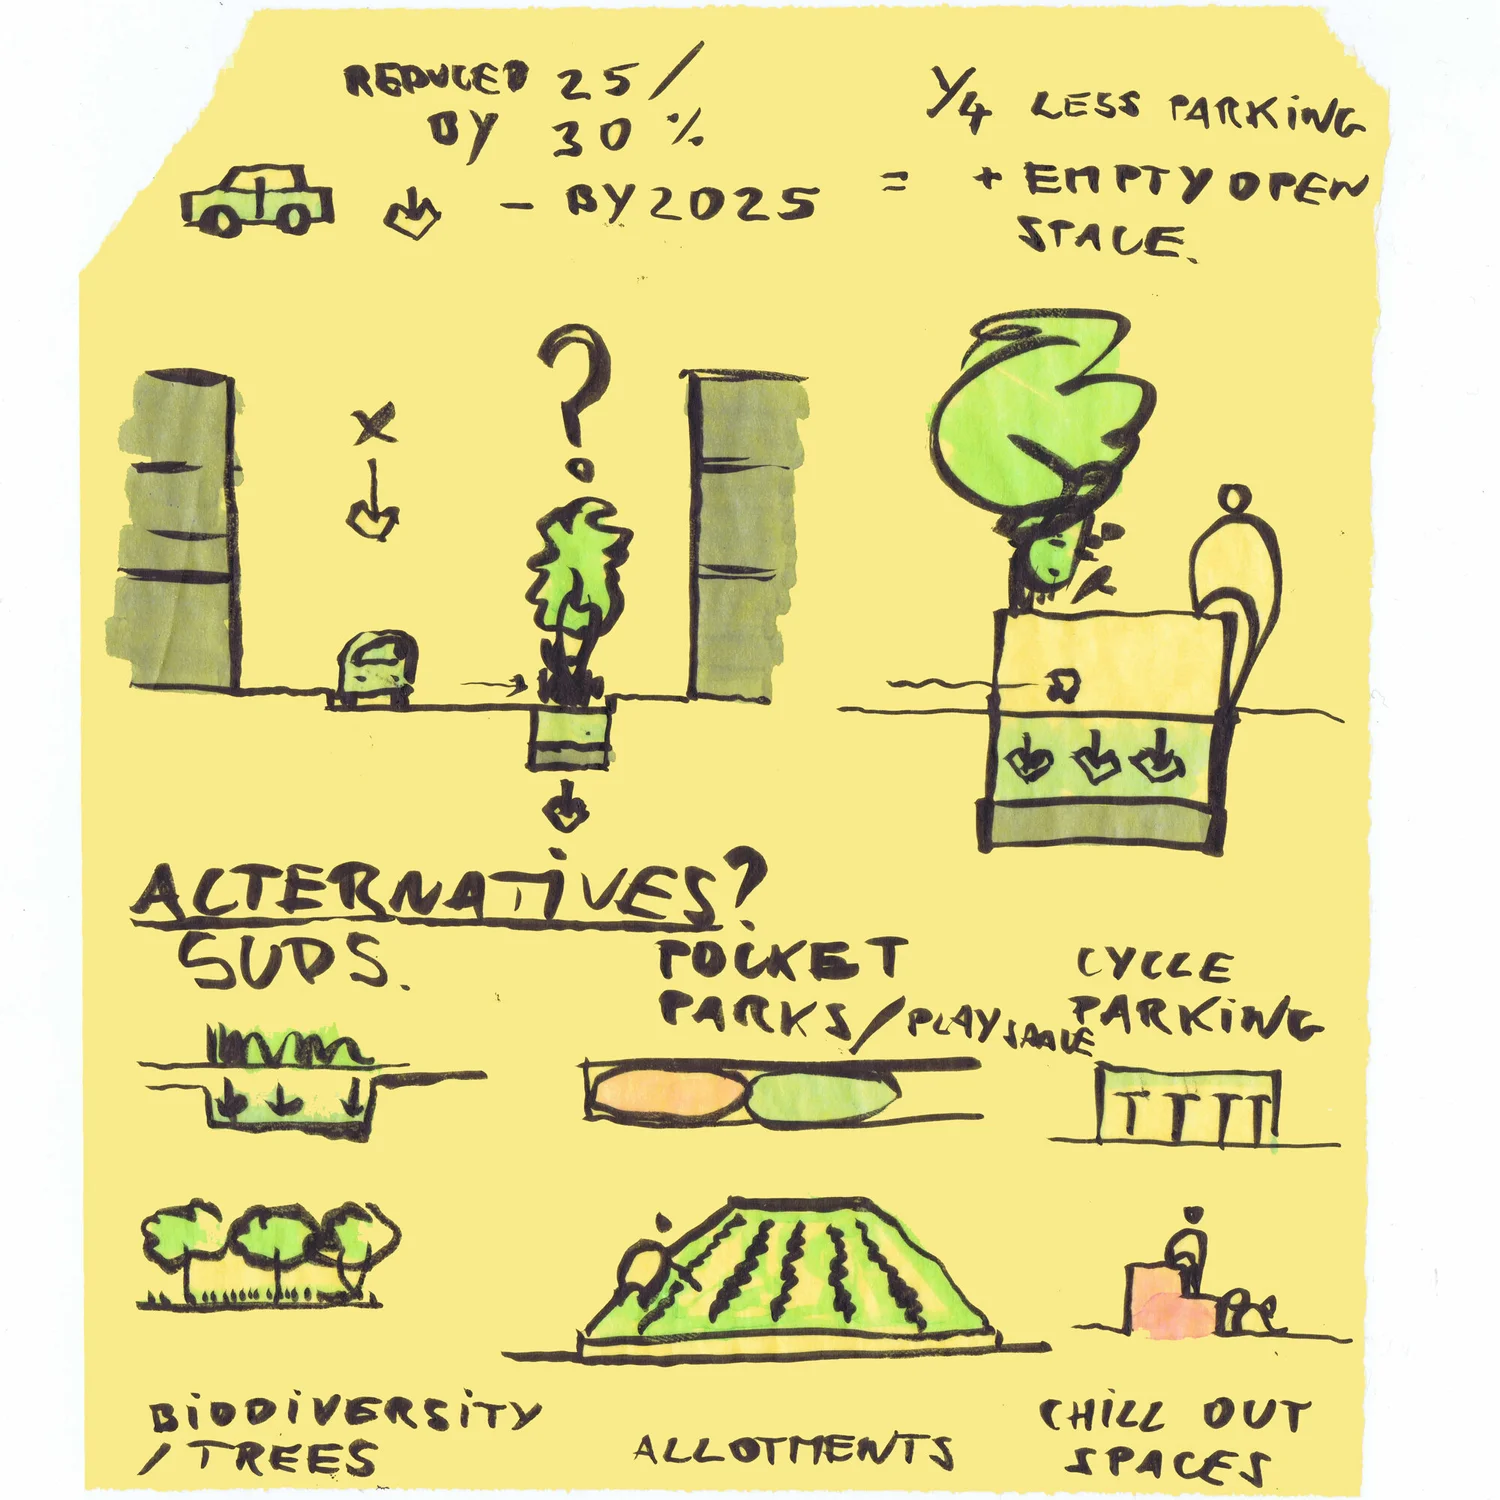 REDUCED 25/
BY 30%
- BY 2025
=
1/4 LESS PARKING
+ EMPTY OPEN
SPACE.
?
ALTERNATIVES?
SUDS.
POCKET
PARKS/PLAYSPACE
CYCLE
PARKING
BIODIVERSITY
/TREES
ALLOTMENTS
CHILL OUT
SPACES